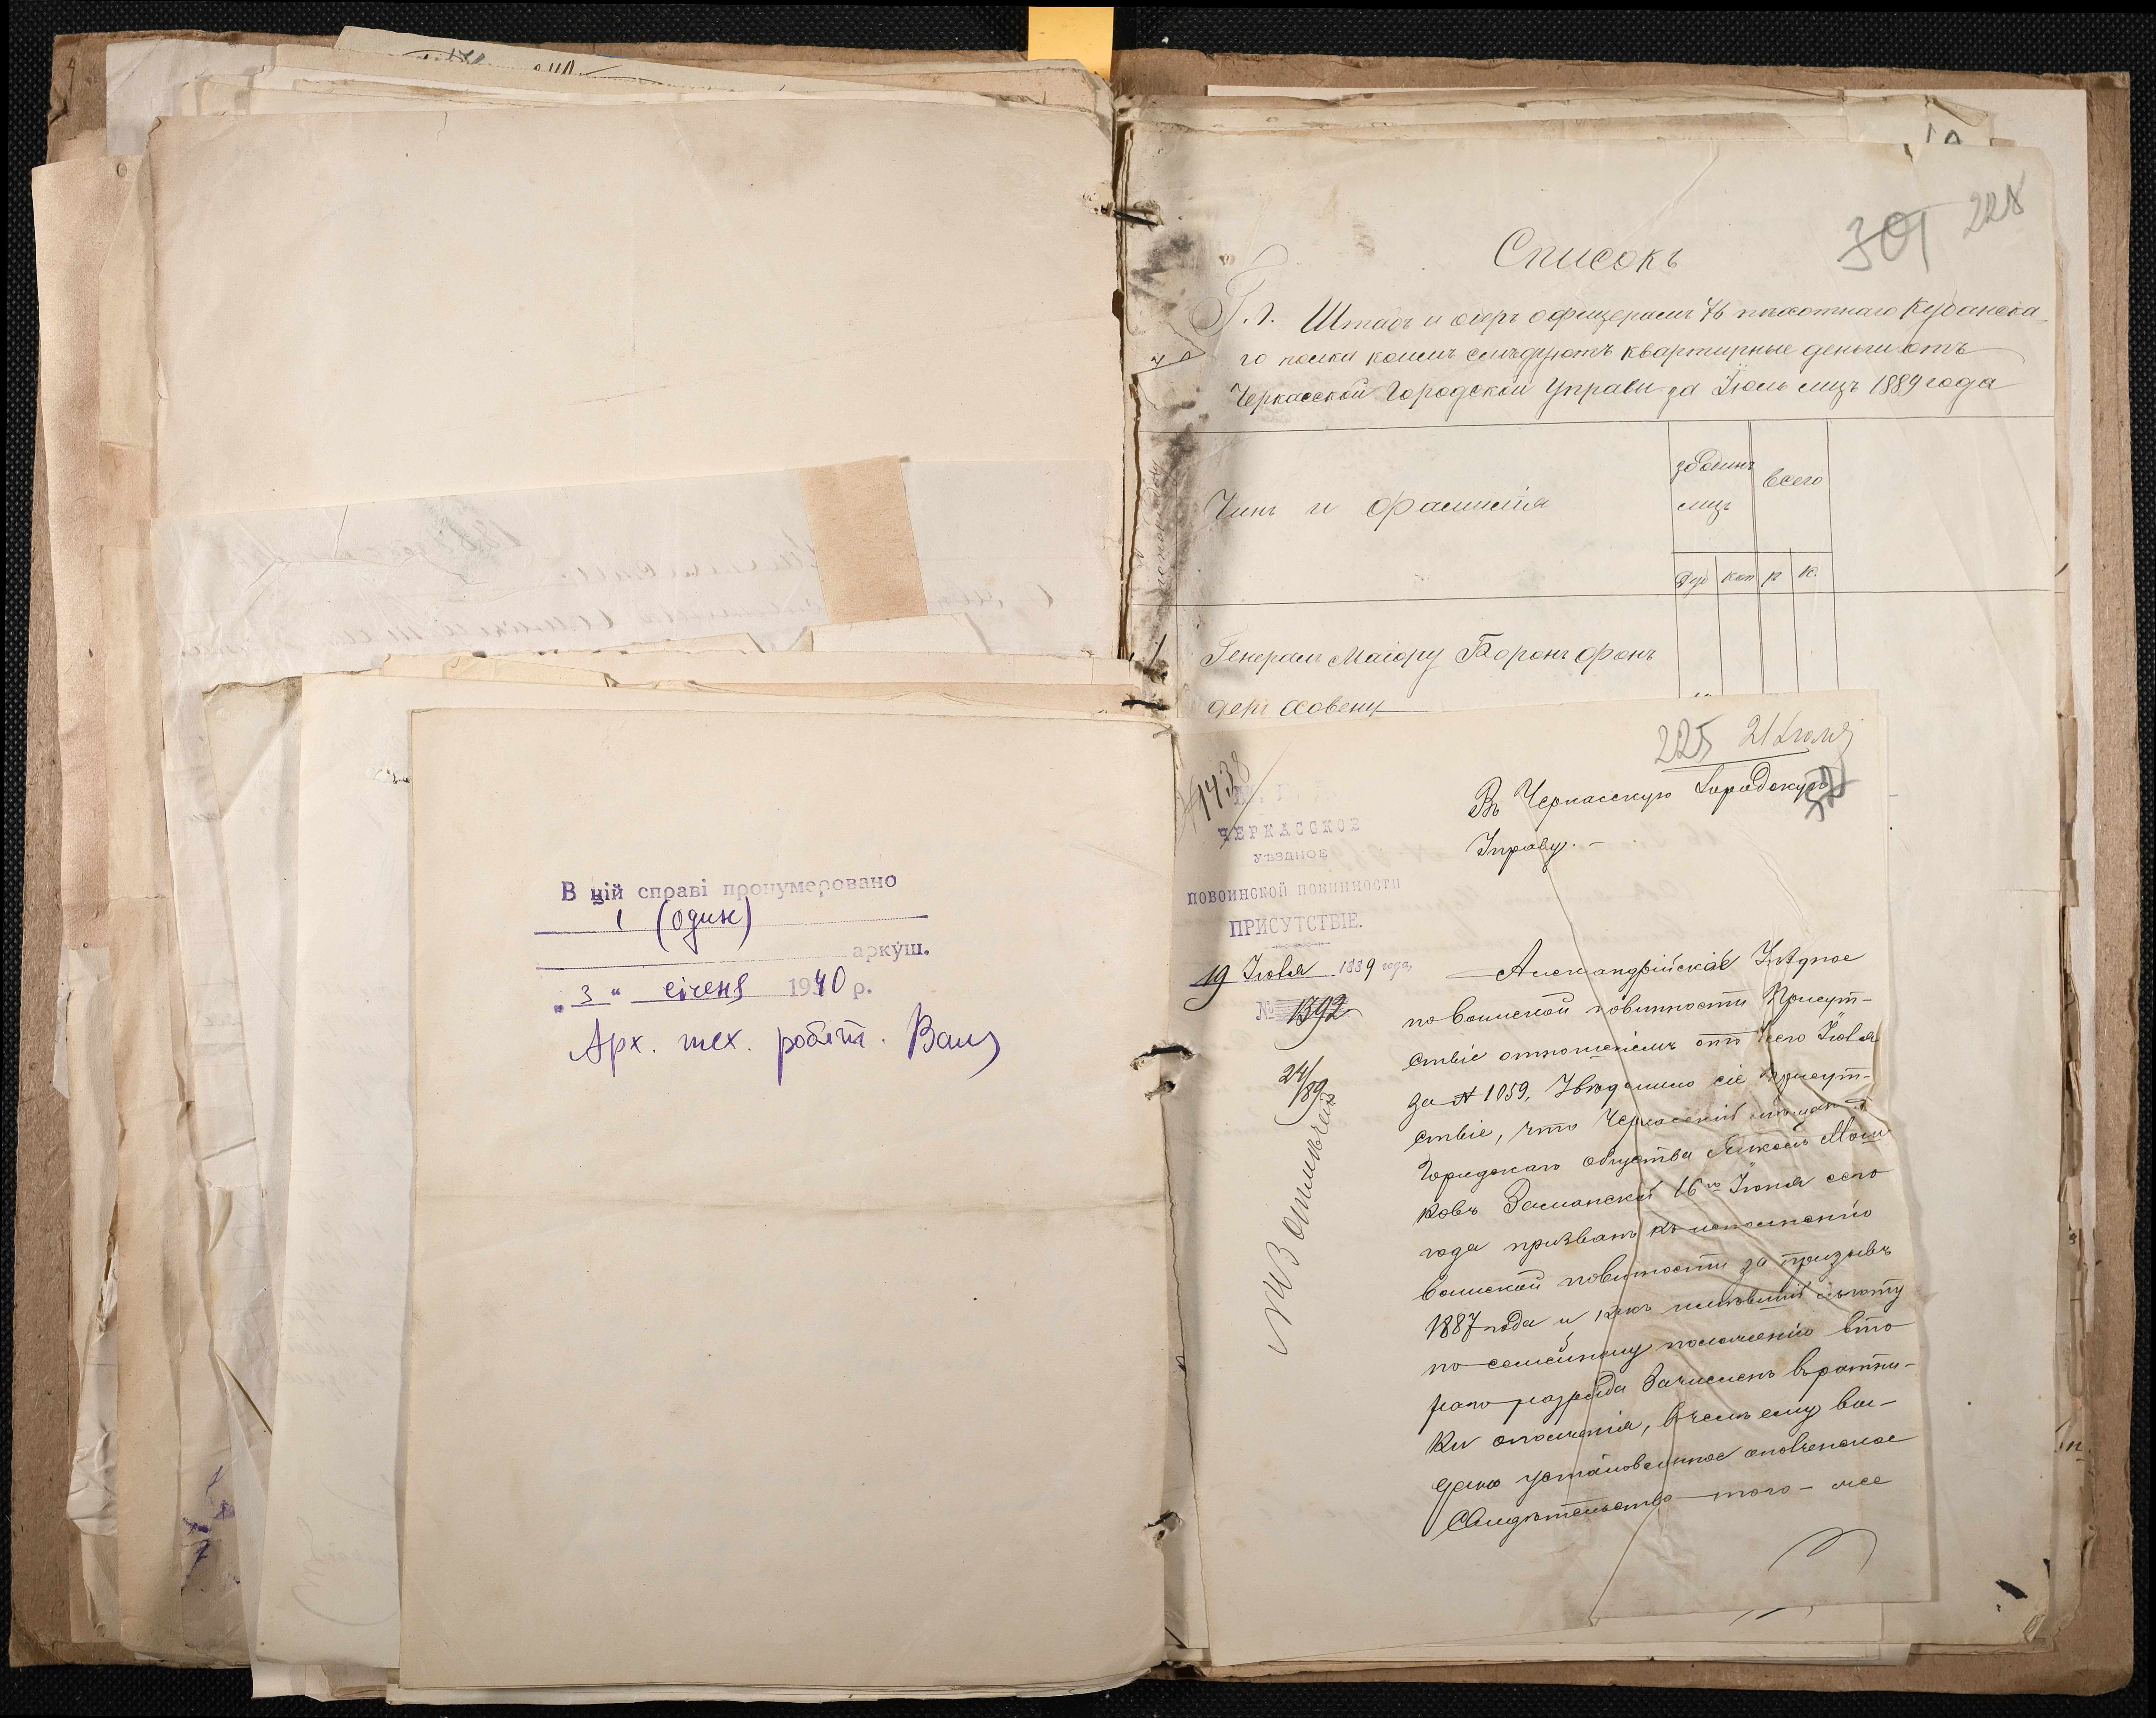 В цій справі пронумеровано
1 (один)
аркуш.
„3“ січня 1940 р.
Арх. тех. робітн.
301 228
Списокъ
Г.г. Штабъ и оберъ офицерамъ 76 пѣхотнаго Кубанска-
го полка коимъ слѣдуютъ квартирные деньги отъ
Черкасской Городской Управы за Іюль мцъ 1889 года
Чинъ и Фамилія
за одинъ
мцъ
всего
Руб коп р к.
1
Генералъ Маіору Баронъ фонъ
деръ Ховену
225 21 Іюля
1438
М. В. Д.
ЧЕРКАССКОЕ
УѢЗДНОЕ
ПОВОИНСКОЙ ПОВИННОСТИ
ПРИСУТСТВІЕ.
19 Іюля 1889 года,
№ 1392
24/
89
Въ Черкасскую Городскую
Управу.-
Александрійское Уѣздное
по воинской повинности Присут-
ствіе отношеніемъ отъ сего Іюля
за № 1059, Увѣдомило сіе присут-
ствіе, что Черкасскій мѣщан
Городскаго общества Мош
ковъ Заславскій 16го Іюня сего
года призванъ къ исполненію
воинской повинности за призывъ
1887 года и какъ имѣвшій льготу
по семейному положенію вто
раго разряда Зачисленъ въ ратни-
ки ополченія, въ чемъ ему вы-
дано установленное ополченское
Свидѣтельство того-же